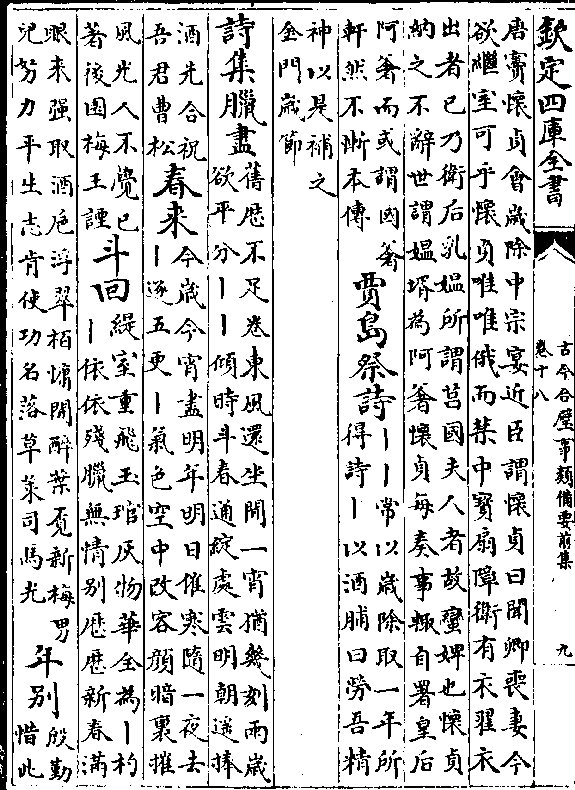 欽定四庫全書
古今合璧事類備要前集
卷十八
九
唐竇懷貞會歲除中宗宴近臣謂懷貞曰聞卿喪妻今
欲繼室可乎懷貞唯唯俄而禁中寳扇障衛有衣翟衣
出者已乃衛后乳媪所謂莒國夫人者故蠻婢也懷貞
納之不辭世謂媪壻為阿箸懷貞每奏事輙自署皇后
阿箸而或謂國箸
軒然不慙本傳
賈島祭詩
丨丨常以歲除取一年所
得詩丨以酒脯曰勞吾精
神以是補之
金門歲節
詩集
臘盡
舊厯不足卷東風還坐聞一宵猶幾刻兩歲
欲平分丨丨傾時斗春通綻處雲明朝遥捧
酒先合祝
吾君曹松
春来
今歲今宵盡明年明日催寒隨一夜去
丨逐五更丨氣色空中改容顔暗裏摧
風光人不覺已
著後園梅王諲
斗回
緹室重飛玉琯灰物華全為丨杓
丨依依殘臘無情别厯厯新春滿
眼来强取酒巵浮翠栢慵開醉葉覔新梅男
兒努力平生志肯使功名落草萊司馬光
年别
殷勤
惜此